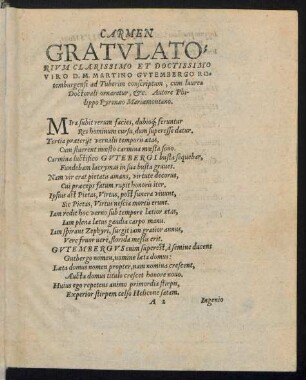 CARMEN
GRATVLATO-
RIVM CLARISSIMO ET DOCTISSIMO
VIRO D. M. MARTINO GVTEMBERGO RO-
temburgensi ad Tuberim conscriptum, cum laurea
Doctorali ornaretur, &c. Autore Phi-
lippo Pyrenæo Mariæmontano.
MIra subit rerum facies, dubioque feruntur
Res hominum cursu, dum superesse datur.
Tertia præterijt vernalis temporis ætas,
Cum fluerent mœsto carmina mœsta sono.
Carmine luctifico GVTEBERGI busta sequebar,
Fundebam lacrymas in sua busta graves.
Nam vir erat pietatis amans, virtute decorus,
Cui præceps fatum rupit honoris iter.
Ipsius ast Pietas, Virtus, post funera vivunt,
Sic Pietas, Virtus nescia mortis erunt.
Iam redit hoc verno sub tempore lætior ætas,
Iam plena lætus gaudia carpo manu.
Iam spirant Zephyri, surgit iam gratior annus,
Vere fruor veri, florida messis erit.
GVTEMBERGVS enim superest, à semine ducens
Gutbergo nomen, nomine læta domus:
Læta domus nomen propter, nam nomina crescent,
Aucta domus titulo crescet honore novo.
Huius ego repetens animo primordia stirpis,
Experior stirpem celso Helicone satam.
A 2 Ingenio